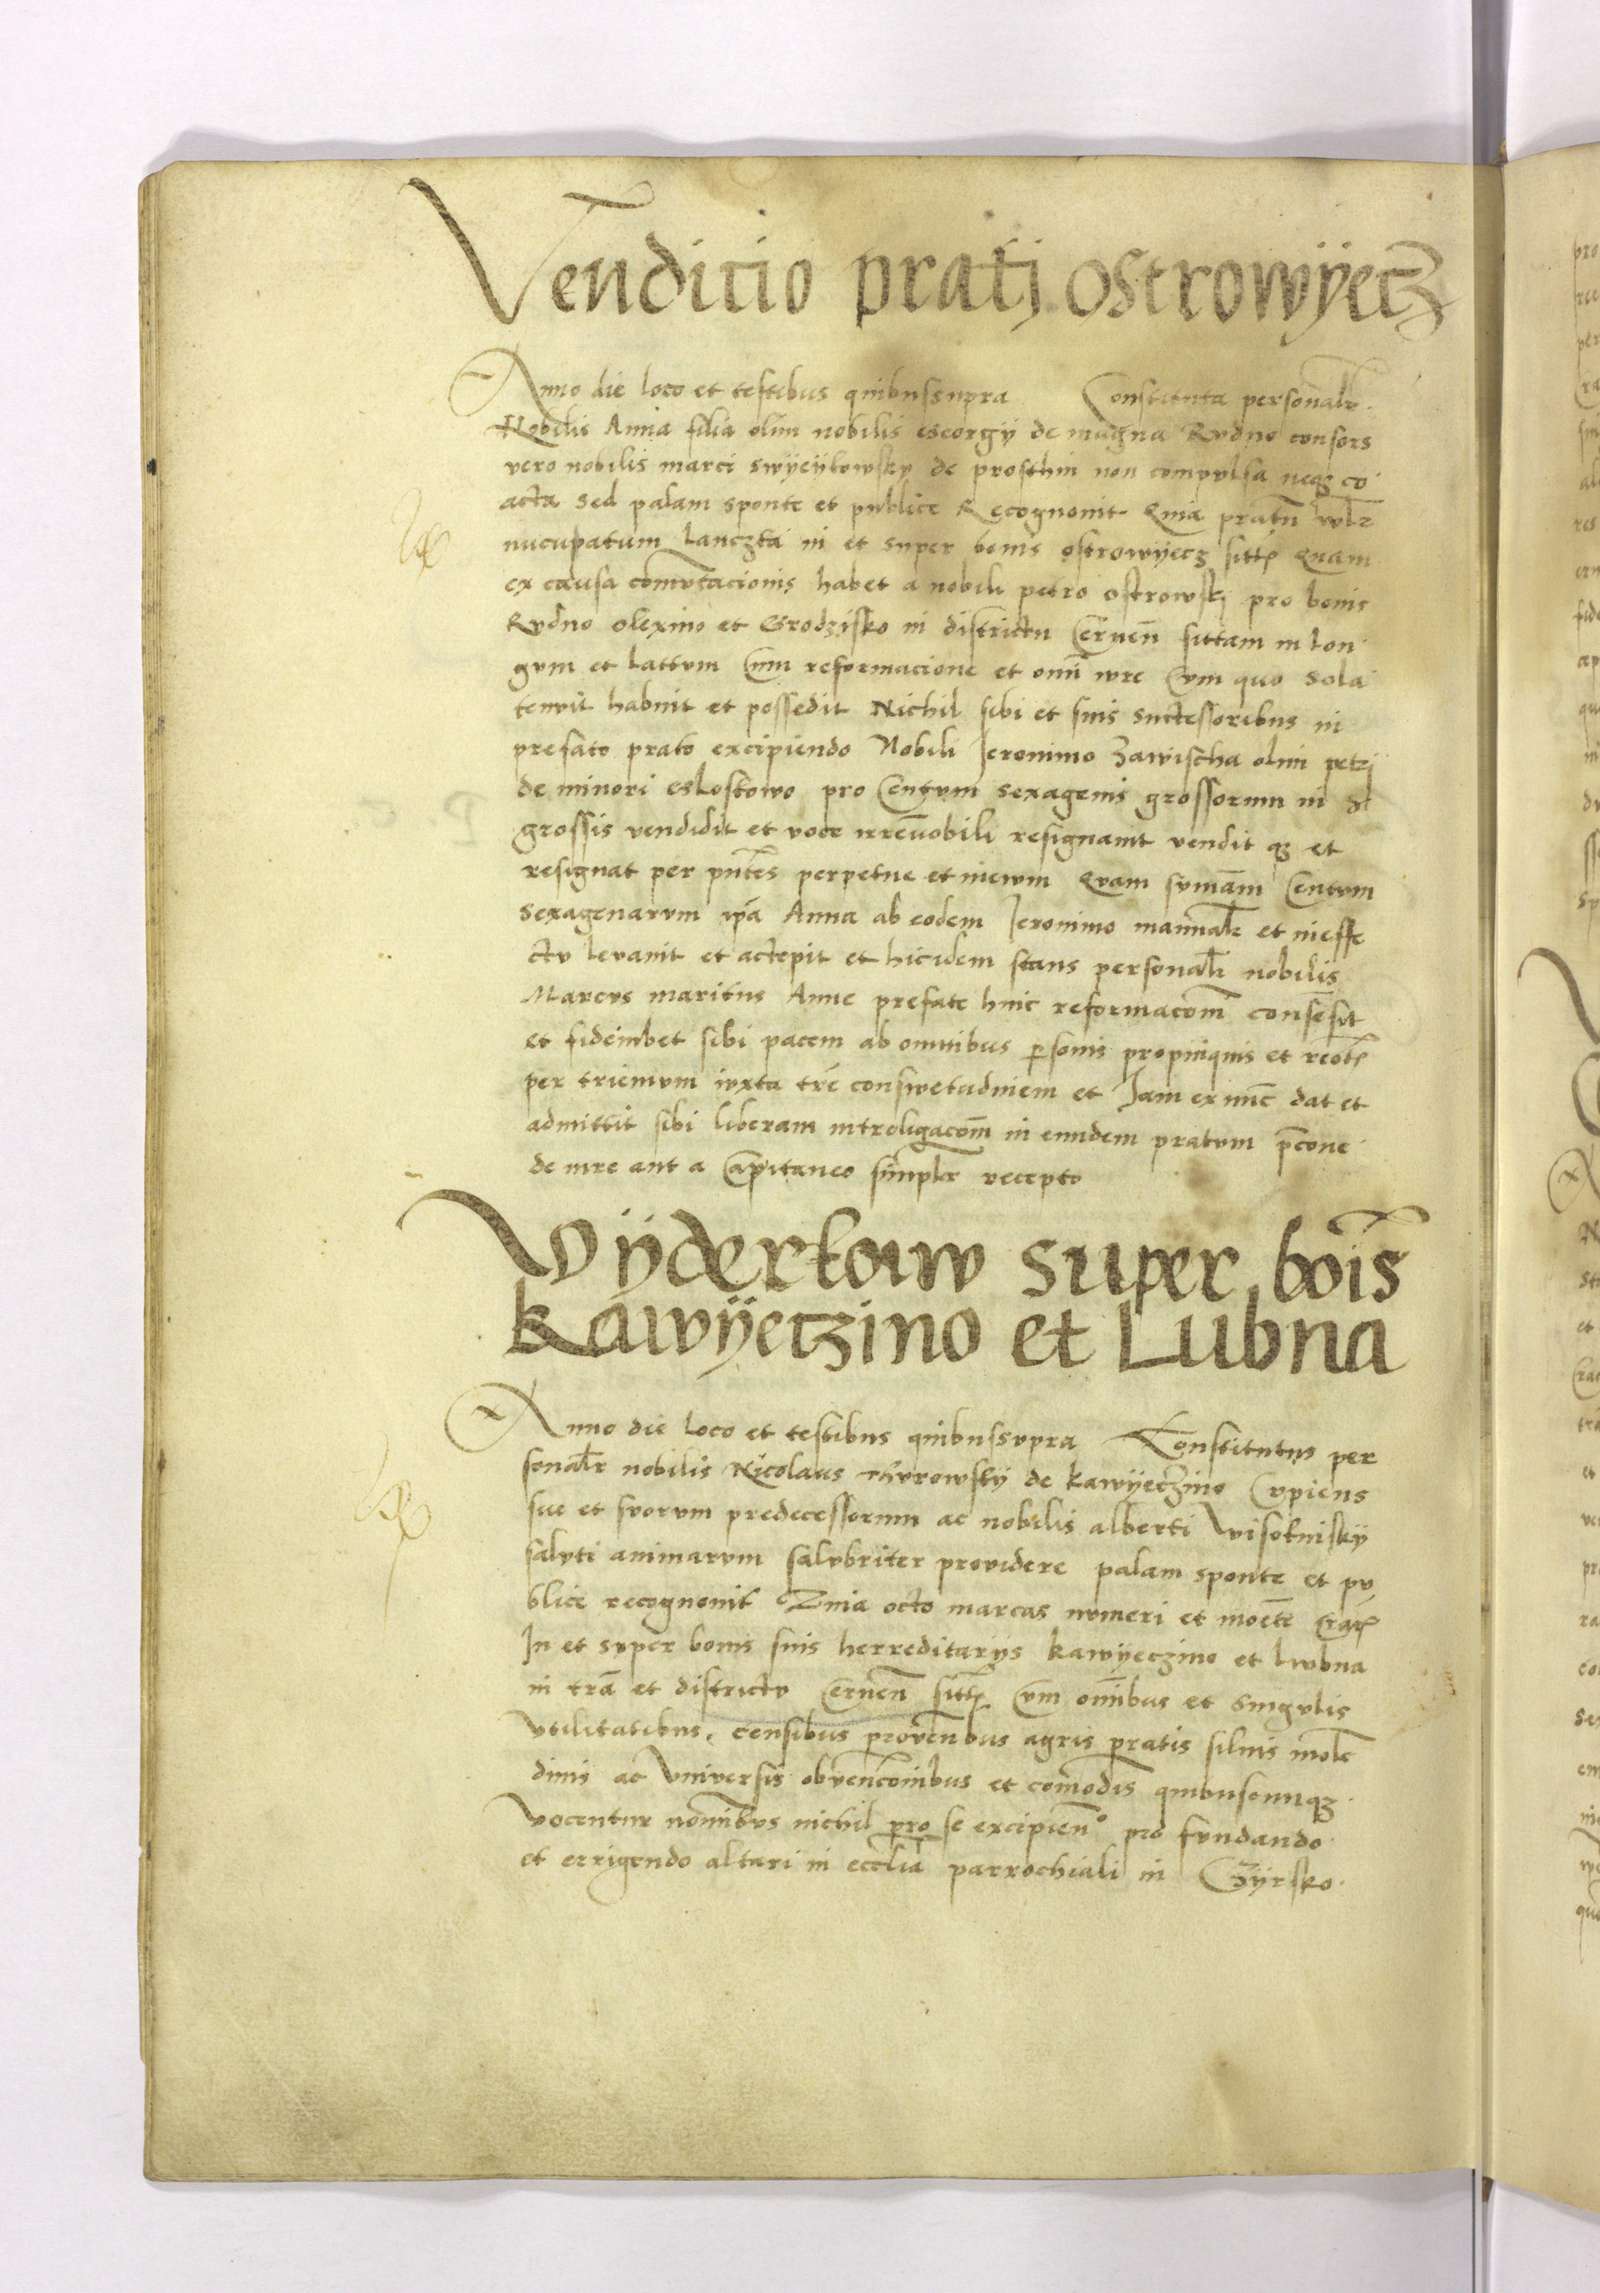 Venditio pratj ostrowÿetz
Anno die loco et testibus quibussupra Constituta personalr
Nobilis Anna filia olim nobilis Georgÿ de magna Rvdno consors
vero nobilis marci de prosthin non compvlsa neqz co
acta sed palam sponte et publice Recognouit Quia pratu wlr
nucupatum Lanczta in et super bonis ostrowÿecz sitt Quam
ex causa comvtacionis habet a nobili petro ostrowskj pro bonis
Rvdno olexino et Grodzisko in districtu Cernen sittam in lon
gvm et lattvm Cum reformacione et omni iure Cvm quo sola
tenvit habuit et possedit Nichil sibi et suis successoribus in
prefato prato excipiendo Nobili Jeronimo Zawischa olim petrj
de minori Gloskowo pro Centvm sexagenis grossorum in
grossis vendidit et voce irreuobili resignauit vendit qz et
resignat per pntes perpetue et in ewm Qvam svmam Centvm
sexagenarvm ipa Anna ab eodem Jeronimo manualr et in effe
ctv levauit et accepit et hic idem stans personalr nobilis
Marcvs maritus Anne prefate huic reformacom consensit
et fideiubet sibi pacem ab omnibus psonis propinquis et
per trienivm ivxta tre conswetudniem et Jam ex nunc dat et
admittit sibi liberam introligacom in eundem pratvm pcone
de iure aut a Capitaneo simplr recepto
Wÿderkaw super bois
Kawÿetzino et Lubna
Anno die loco et testibus quibussvpra Constitutus per
sonalr nobilis Nicolaus Thvrowskÿ de kawÿeczino Cvpiens
sue et svorvm predecessorum ac nobilis alberti
salvti animarvm salvbriter providere palam sponte et pv
blice recognouit Quia octo marcas nvmeri et moete
In et svper bonis suis herreditarÿs kawÿeczino et lwbna
in tra et districtv Cernen sitt Cvm omibus et singvlis
vtilitatibus, censibus prouenbus agris pratis siluis mole
dinis ac vniversis obvencoinibus et comodis quibuscunqz
vocentur nomibvs nichil pro se excipien° pro fvndando
et errigendo altari in ecclia parrochiali in Czÿrsko